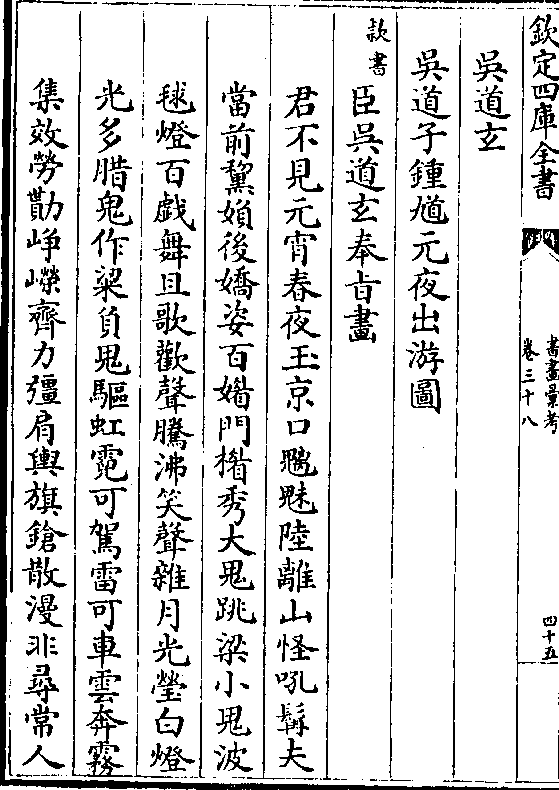 欽定四庫全書
書畫彙考
卷三十八
四十五
吳道玄
吳道子鍾馗元夜出游圖
款書
臣吳道玄奉旨畫
君不見元宵春夜玉京口魑魅陸離山怪吼髯夫
當前黧媍後嬌姿百媘門楷秀大鬼跳梁小鬼波
毬燈百戲舞且歌歡聲騰沸笑聲雜月光瑩白燈
光多腊鬼作粱負鬼驅虹霓可駕雷可車雲奔霧
集效勞勩崢嶸齊力彊肩輿旗鎗散漫非尋常人